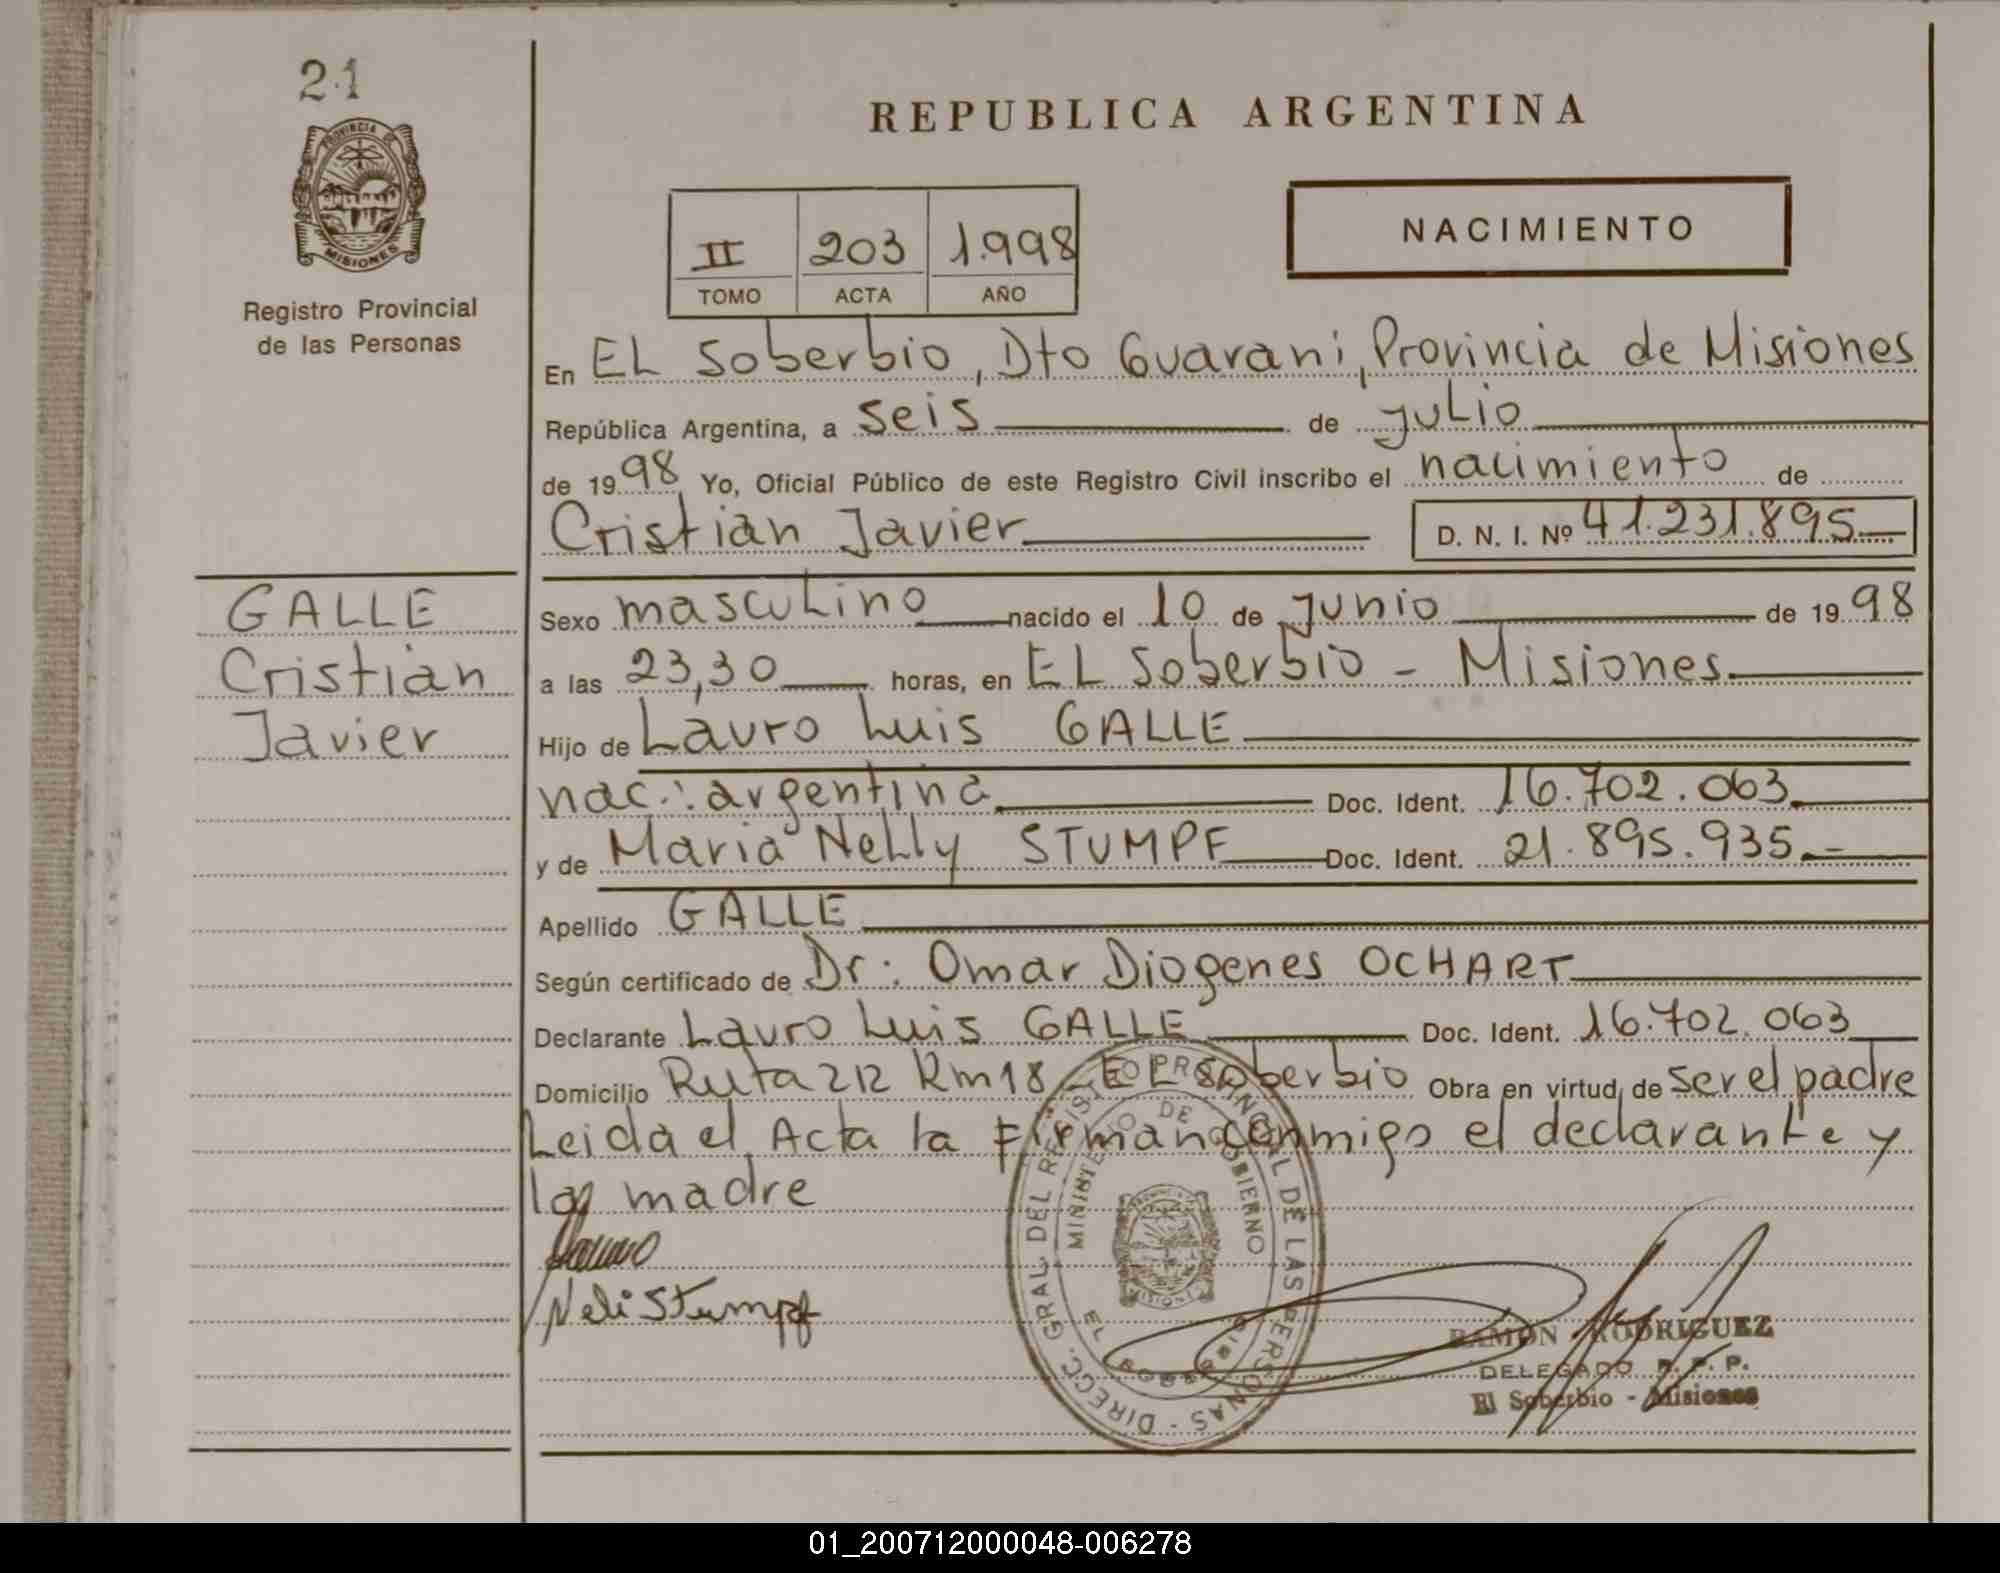 21
PROVINCIA DE
MISIONES
Registro Provincial
de las Personas
GALLE
Cristian
Javier
REPUBLICA ARGENTINA
II 203 1.998
TOMO ACTA AÑO
NACIMIENTO
En EL Soberbio, Dto Guarani, Provincia de Misiones
República Argentina, a seis de julio
de 1998 Yo, Oficial Público de este Registro Civil inscribo el nacimiento de
Cristian Javier D. N. I. Nº 41.231.895
Sexo masculino nacido el 10 de junio de 1998
a las 23,30 horas, en EL Soberbio - Misiones
Hijo de Lauro Luis GALLE
nac.: argentina Doc. Ident. 16.702.063
y de Maria Nelly STUMPF Doc. Ident. 21.895.935
Apellido GALLE
Según certificado de Dr: Omar Diogenes OCHART
Declarante Lauro Luis GALLE Doc. Ident. 16.702.063
Domicilio Ruta 212 Km 18 - EL Soberbio Obra en virtud de ser el padre
Leida el Acta la Firman conmigo el declarante y
la madre
Neli Stumpf
DIRECC. GRAL. DEL REGISTRO PROVINCIAL DE LAS PERSONAS
MINISTERIO DE GOBIERNO
RAMON RODRIGUEZ
DELEGADO R. P. P.
El Soberbio - Misiones
01_200712000048-006278